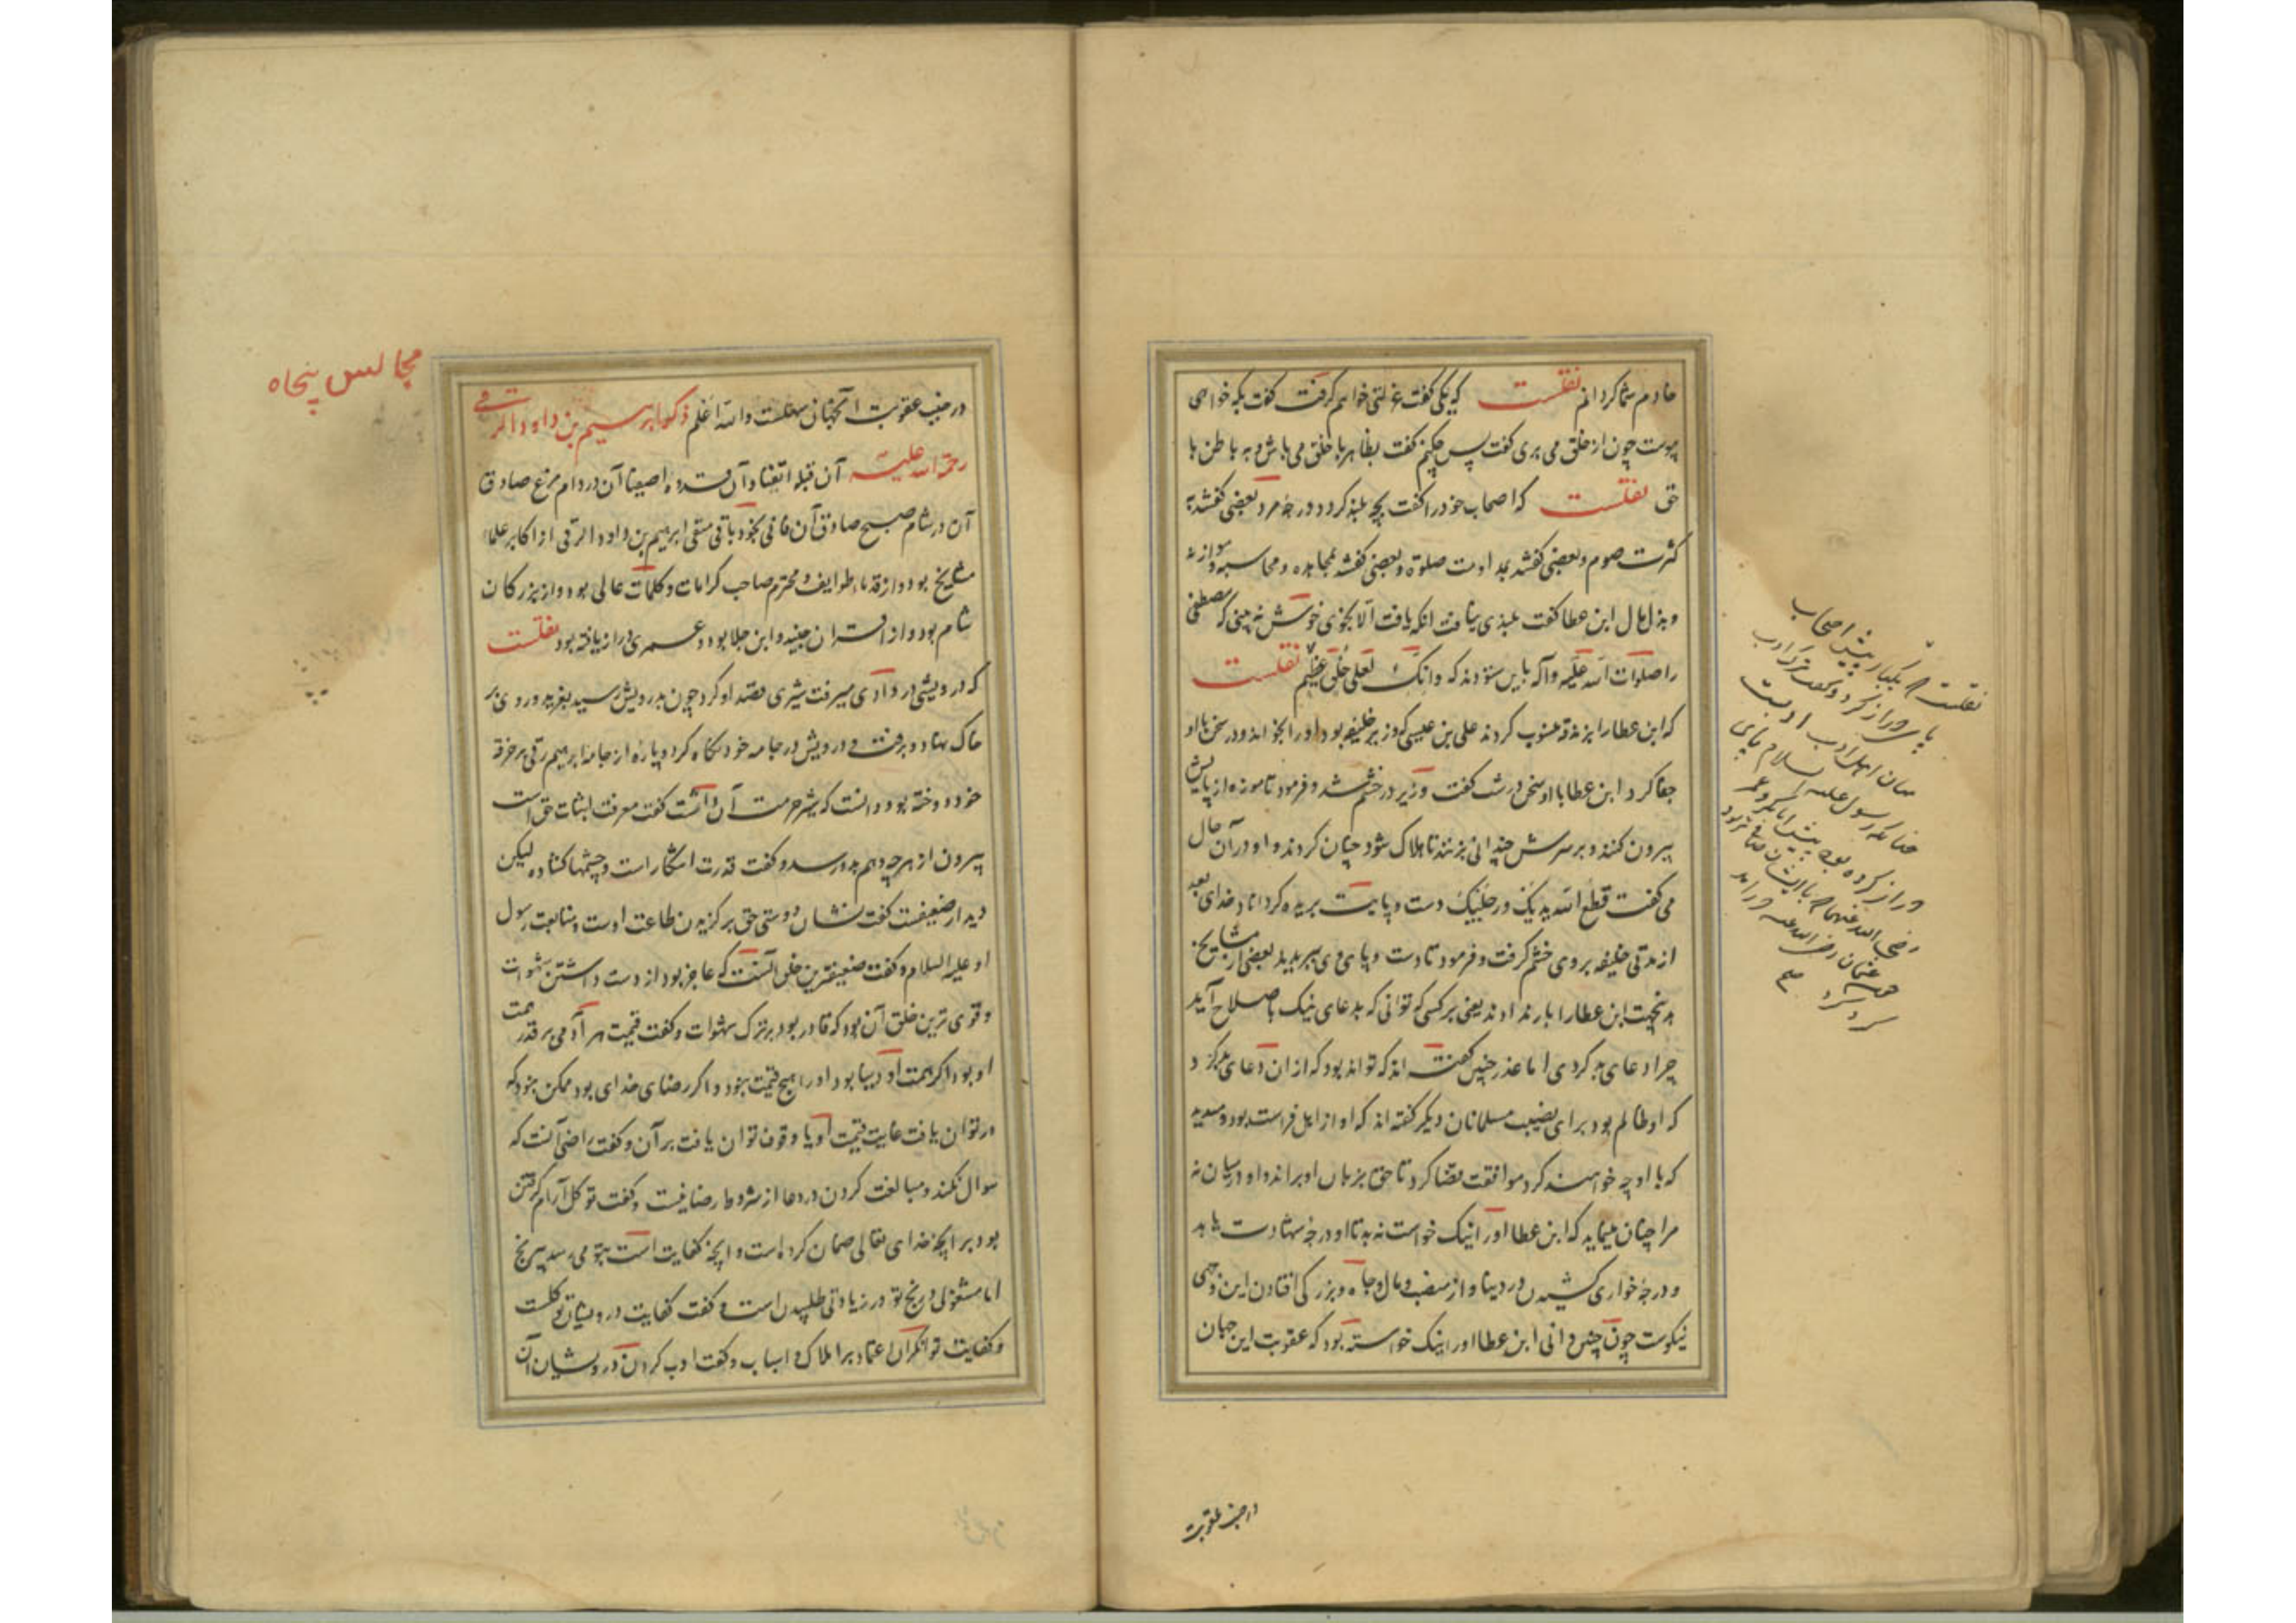 خادم شما گردانم نقلست که یکی گفت عزلتی خواهم گرفت گفت بکه خواهی
پیوست چون از خلق می بری گفت پس چکنم گفت بظاهر با خلق می باش و به باطن با
حق نقلست که اصحاب خود را گفت بچه بلند کردد درجهٔ مرد بعضی گفتند به
کثرت صوم و بعضی گفتند بمداومت صلوة و بعضی گفتند بمجاهده و محاسبه و موازنه
و بذل مال ابن عطا گفت بلندی نیافت انکه یافت الا بخوی خوش نه بینی که مصطفی
را صلوات الله علیه وآله باین ستودند که وانک لعلی خلق عظیم نقلست
که ابن عطا را بزندقه منسوب کردند علی بن عیسی که وزیر خلیفه بود او را بخواند و در سخن با او
جفا کرد ابن عطا با او سخن درشت گفت وزیر در خشم شد و فرمود تا موزه از پایش
بیرون کنند و بر سرش چندانی بزنند تا هلاک شود چنان کردند و او در آن حال
می گفت قطع الله یدیک و رجلیک دست و پایت بریده کرداناد خدای بعد
از مدتی خلیفه بر وی خشم گرفت و فرمود تا دست و پای وی ببریدند بعضی از مشایخ
بدینجهت ابن عطا را باز نداوند یعنی بر کسی که توانی که بدعای نیک باصلاح آید
چرا دعای بد کردی اما عذر چنین گفته اند که تواند بود که از ان دعای بد کرد
که او ظالم بود برای نصیب مسلمانان دیگر گفته اند که او از اهل فراست بود و میدید
که با او چه خواهند کرد موافقت قضا کرد تا حق بزبان او براند و او درمیان نه
مرا چنان مینماید که ابن عطا او را نیک خواست نه بد تا او درجهٔ شهادت یابد
و درجهٔ خواری کشیدن در دنیا و از منصب و مال و جاه و بزرگی افتادن این وجهی
نیکوست چون چنین دانی ابن عطا او را نیک خواسته بود که عقوبت این جهان
نقلست که یکبار پیش اصحاب
پای دراز کرد و گفت ترک ادب
میان اهل ادب ادبست
چنانکه رسول علیه السلام پای
دراز کرده بود پیش ابابکر و عمر
رضی الله عنهما با ایشان صافتر بود
چون عثمان رضی الله عنه درآمد
کرد کرد
درجنب عقوبت
درجنب عقوبت آنجهانی سهلست والله اعلم ذکر ابراهیم بن داود الرقی
رحمة الله علیه آن قبلهٔ اتقیا و آن قدوهٔ اصفیا آن در دام مرغ صادق
آن در شام صبح صادق آن فانی بخود باقی متقی ابرهیم بن داود الرقی از اکابر علماء
مشایخ بود و از قدماء طوایف و محترم صاحب کرامات و کلمات عالی بود و از بزرکان
شام بود و از اقران جنید و ابن جلا بود و عمری دراز یافته بود نقلست
که درویشی در وادی میرفت شیری قصد او کرد چون بدرویش رسید بغرید و روی بر
خاک نهاد و برفت درویش در جامه خود نگاه کرد و پارهٔ از جامهٔ ابرهیم رقی بر خرقهٔ
خود دوخته بود دانست که شیر حرمت آن داشت گفت معرفت اثبات حق است
بیرون از هرچه وهم بدو رسد و گفت قدرت آشکار است و چشمها کشاده لیکن
دیدار ضعیفست گفت نشان دوستی حق برگزیدن طاعت اوست و متابعت رسول
او علیه السلام و گفت ضعیفترین خلق آنست که عاجز بود از دست داشتن شهوات
و قوی ترین خلق آن بود که قادر بود بر ترک شهوات و گفت قیمت هر آدمی بر قدر همت
او بود اگر همت او دنیا بود او را هیچ قیمت نبود و اگر رضای خدای بود ممکن نبود که
در توان یافت غایت قیمت او یا وقوف توان یافت بر آن و گفت راضی آنست که
سوال نکند و مبالغت کردن در دعا از شروط رضا نیست و گفت توکل آرام گرفتن
بود بر آنچه خدای تعالی ضمان کرده است و آنچه کفایت است بتو می رسد بیرنج
اما مشغولی و رنج تو در زیادتی طلبیدن است و گفت کفایت درویشان توکلست
و کفایت توانگران اعتماد بر املاک و اسباب و گفت ادب کردن درویشان آن
مجالس پنجاه